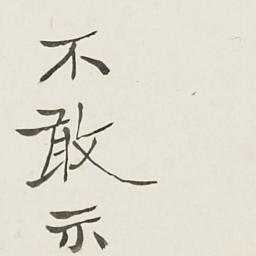 不敢示